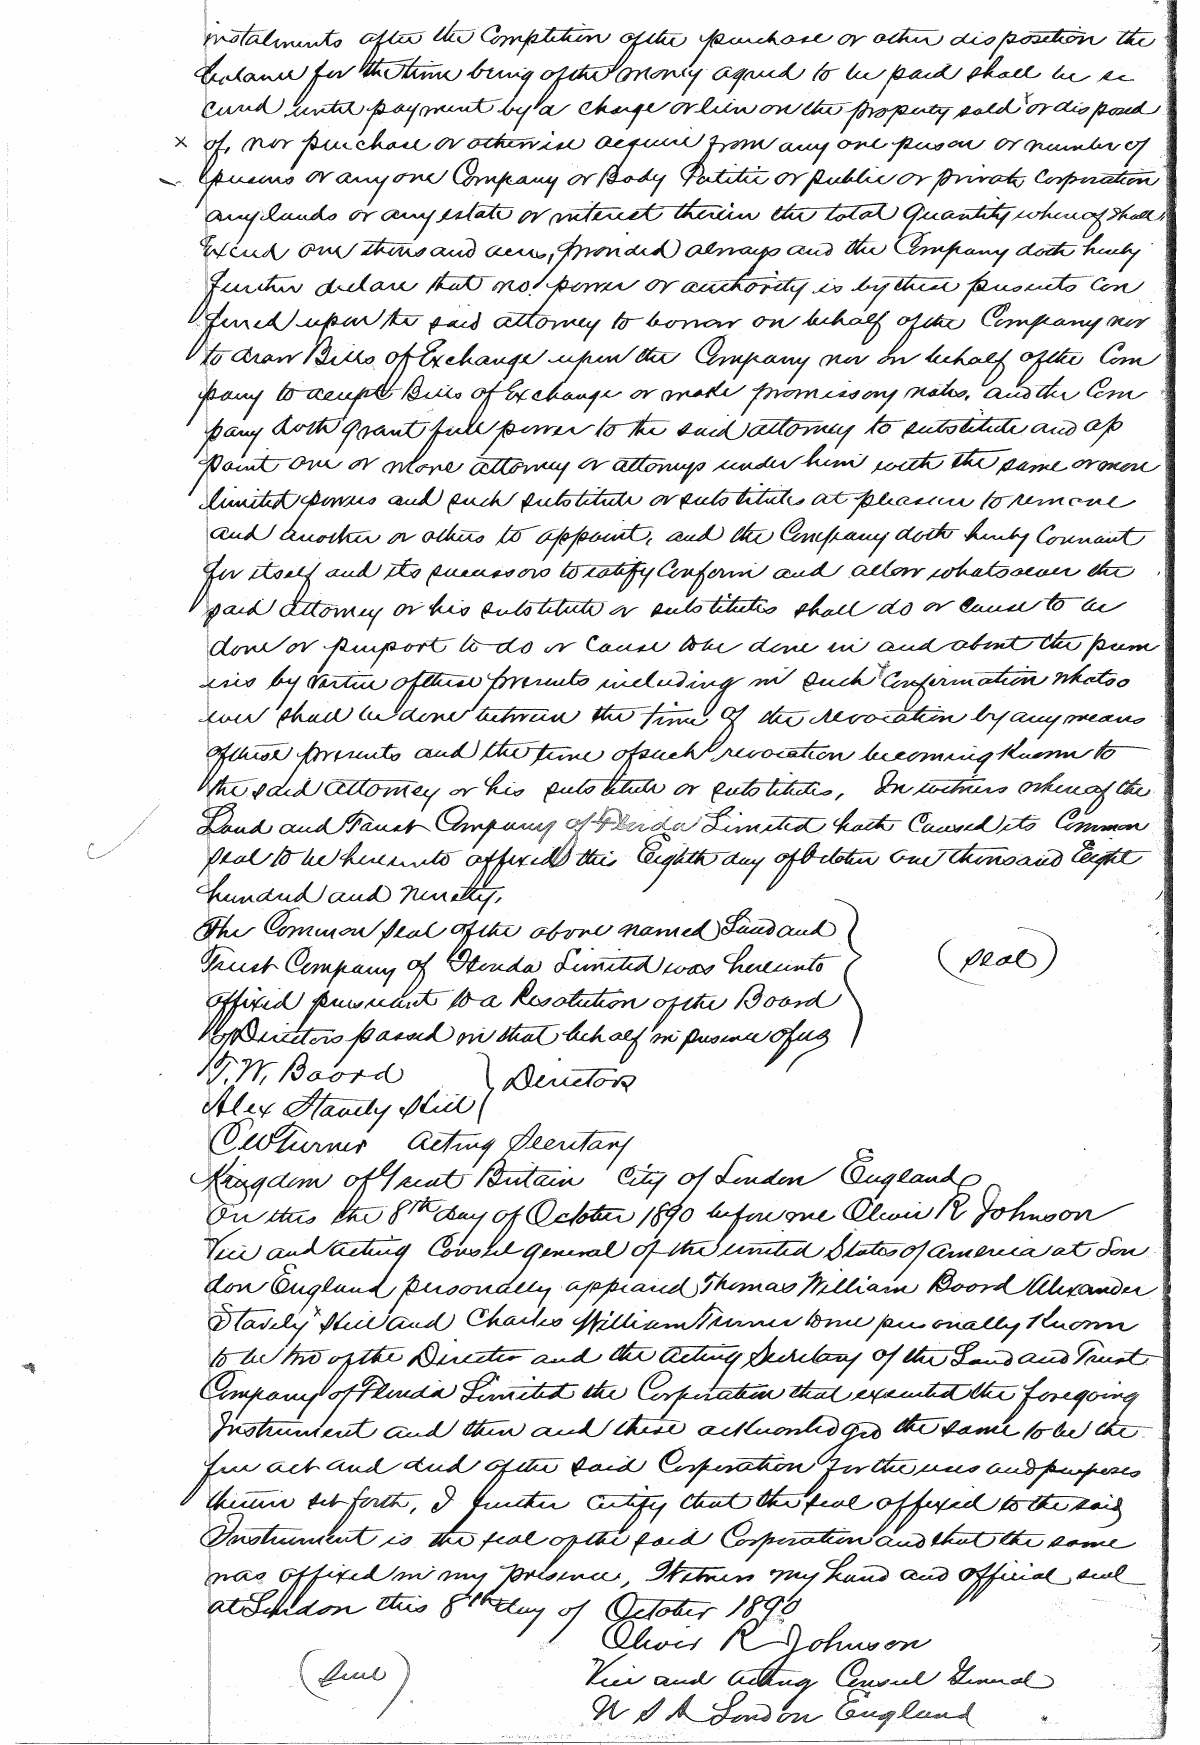 instalments after the Completion of the purchase or other disposition the
balance for the time being of the money agreed to be paid shall be se
cured until payment by a charge or lien on the property sold or disposed
x of, nor purchase or otherwise acquire from any one person or number of
persons or any one Company or Body Politic or public or private Corporation
any lands or any estate or interest therein the total Quantity whereof shall
Exceed one thousand acres, provided always and the Company doth hereby
further declare that no power or authority is by these presents con
ferred upon the said attorney to borrow on behalf of the Company nor
to draw Bills of Exchange upon the Company nor on behalf of the Com
pany to accept Bills of Exchange or make promissory notes, and the Com
pany doth grant full power to the said attorney to substitute and ap
point one or more attorney or attorneys under him with the same or more
limited powers and such substitute or substitutes at pleasure to remove
and another or others to appoint, and the Company doth hereby Covenant
for itself and its successors to ratify Confirm and allow whatsoever the
said attorney or his substitute or substitutes shall do or cause to be
done or purport to do or cause to be done in and about the prem
ises by virtue of these presents including in such Confirmation whatso
ever shall be done between the time of the revocation by any means
of these presents and the time of such revocation becoming Known to
the said attorney or his substitute or substitutes, In witness whereof the
Land and Trust Company of Florida Limited hath Caused its Common
Seal to be hereunto affixed this Eighth day of October one thousand Eight
hundred and Ninety.
The Common Seal of the above named Land and
Trust Company of Florida Limited was hereunto
affixed pursuant to a Resolution of the Board
of Directors passed in that behalf in presence of us
(seal)
T. W. Boord
Alex Stavely Hill
Directors
C W Turner Acting Secretary
Kingdom of Great Britain City of London England
On this the 8th day of October 1890 before me Oliver R Johnson
Vice and Acting Consul General of the United States of America at Lon
don England personally appeared Thomas William Boord Alexander
Stavely Hill and Charles William Turner to me personally Known
to be two of the Director and the Acting Secretary of the Land and Trust
Company of Florida Limited the Corporation that executed the foregoing
Instrument and then and there acknowledged the same to be the
free act and deed of the said Corporation for the uses and purposes
therein set forth, I further certify that the seal affixed to the said
Instrument is the seal of the said Corporation and that the same
was affixed in my presence, Witness my hand and official seal
at London this 8th day of October 1890
Oliver R Johnson
(Seal)
Vice and Acting Consul General
U S A London England